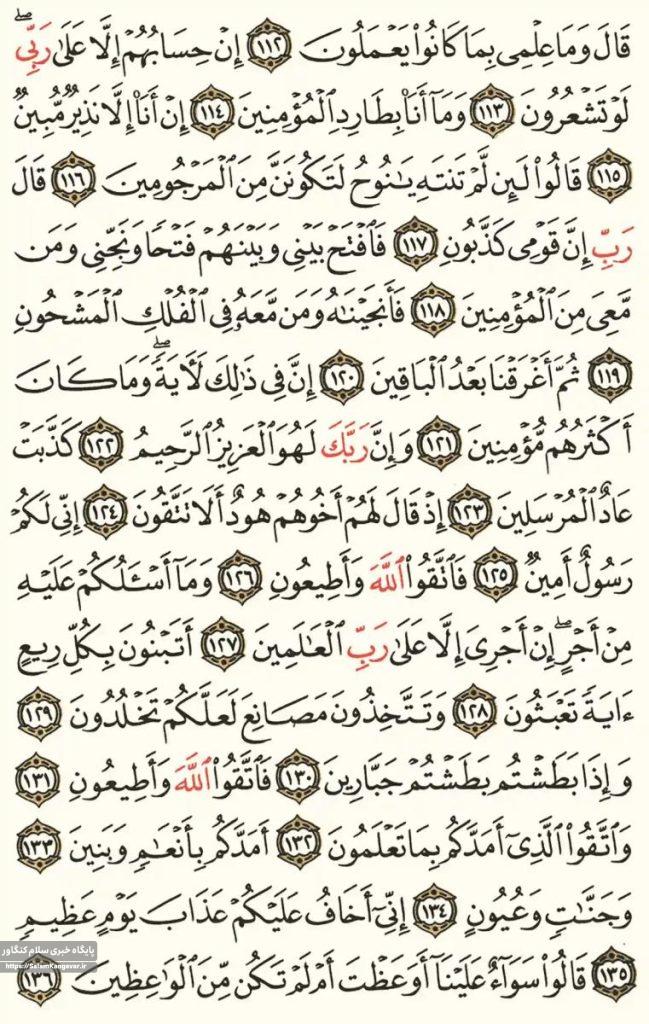 قَالَ وَمَا عِلْمِى بِمَا كَانُوا۟ يَعْمَلُونَ ١١٢ إِنْ حِسَابُهُمْ إِلَّا عَلَىٰ رَبِّى ۖ
لَوْ تَشْعُرُونَ ١١٣ وَمَآ أَنَا۠ بِطَارِدِ ٱلْمُؤْمِنِينَ ١١٤ إِنْ أَنَا۠ إِلَّا نَذِيرٌ مُّبِينٌ
١١٥ قَالُوا۟ لَئِن لَّمْ تَنتَهِ يَـٰنُوحُ لَتَكُونَنَّ مِنَ ٱلْمَرْجُومِينَ ١١٦ قَالَ
رَبِّ إِنَّ قَوْمِى كَذَّبُونِ ١١٧ فَٱفْتَحْ بَيْنِى وَبَيْنَهُمْ فَتْحًا وَنَجِّنِى وَمَن
مَّعِىَ مِنَ ٱلْمُؤْمِنِينَ ١١٨ فَأَنجَيْنَـٰهُ وَمَن مَّعَهُۥ فِى ٱلْفُلْكِ ٱلْمَشْحُونِ
١١٩ ثُمَّ أَغْرَقْنَا بَعْدُ ٱلْبَاقِينَ ١٢٠ إِنَّ فِى ذَٰلِكَ لَـَٔايَةً ۖ وَمَا كَانَ
أَكْثَرُهُم مُّؤْمِنِينَ ١٢١ وَإِنَّ رَبَّكَ لَهُوَ ٱلْعَزِيزُ ٱلرَّحِيمُ ١٢٢ كَذَّبَتْ
عَادٌ ٱلْمُرْسَلِينَ ١٢٣ إِذْ قَالَ لَهُمْ أَخُوهُمْ هُودٌ أَلَا تَتَّقُونَ ١٢٤ إِنِّى لَكُمْ
رَسُولٌ أَمِينٌ ١٢٥ فَٱتَّقُوا۟ ٱللَّهَ وَأَطِيعُونِ ١٢٦ وَمَآ أَسْـَٔلُكُمْ عَلَيْهِ
مِنْ أَجْرٍ ۖ إِنْ أَجْرِىَ إِلَّا عَلَىٰ رَبِّ ٱلْعَـٰلَمِينَ ١٢٧ أَتَبْنُونَ بِكُلِّ رِيعٍ
ءَايَةً تَعْبَثُونَ ١٢٨ وَتَتَّخِذُونَ مَصَانِعَ لَعَلَّكُمْ تَخْلُدُونَ ١٢٩
وَإِذَا بَطَشْتُم بَطَشْتُمْ جَبَّارِينَ ١٣٠ فَٱتَّقُوا۟ ٱللَّهَ وَأَطِيعُونِ ١٣١
وَٱتَّقُوا۟ ٱلَّذِىٓ أَمَدَّكُم بِمَا تَعْلَمُونَ ١٣٢ أَمَدَّكُم بِأَنْعَـٰمٍ وَبَنِينَ ١٣٣
وَجَنَّـٰتٍ وَعُيُونٍ ١٣٤ إِنِّىٓ أَخَافُ عَلَيْكُمْ عَذَابَ يَوْمٍ عَظِيمٍ
١٣٥ قَالُوا۟ سَوَآءٌ عَلَيْنَآ أَوَعَظْتَ أَمْ لَمْ تَكُن مِّنَ ٱلْوَٰعِظِينَ ١٣٦
پایگاه خبری سلام کنگاور
https://SalamKangavar.ir